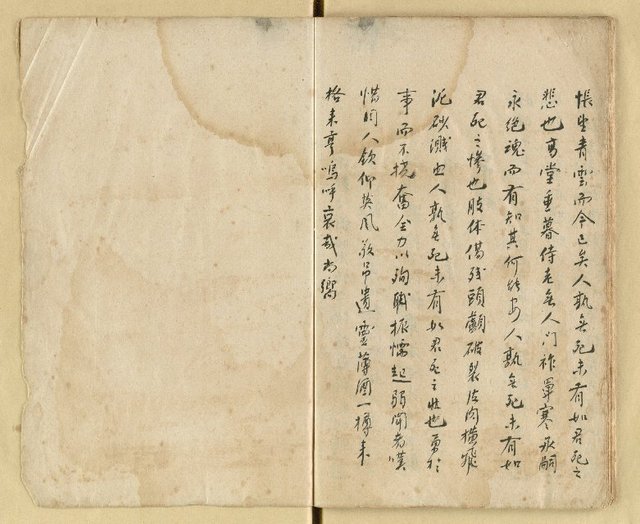 悵望青雲而今已矣人孰無死未有如君死之
悲也高堂垂暮侍老無人門祚單寒承嗣
永絕魂而有知其何能安人孰無死未有如
君死之慘也肢体傷殘頭顱破裂活肉橫飛
泥砂濺血人孰無死未有如君死之壯也勇於
事而不撓奮全力以殉職振懦起弱聞者嘆
惜同人欽仰英風敬吊遺靈薄酒一樽來
格來享嗚呼哀哉尚饗